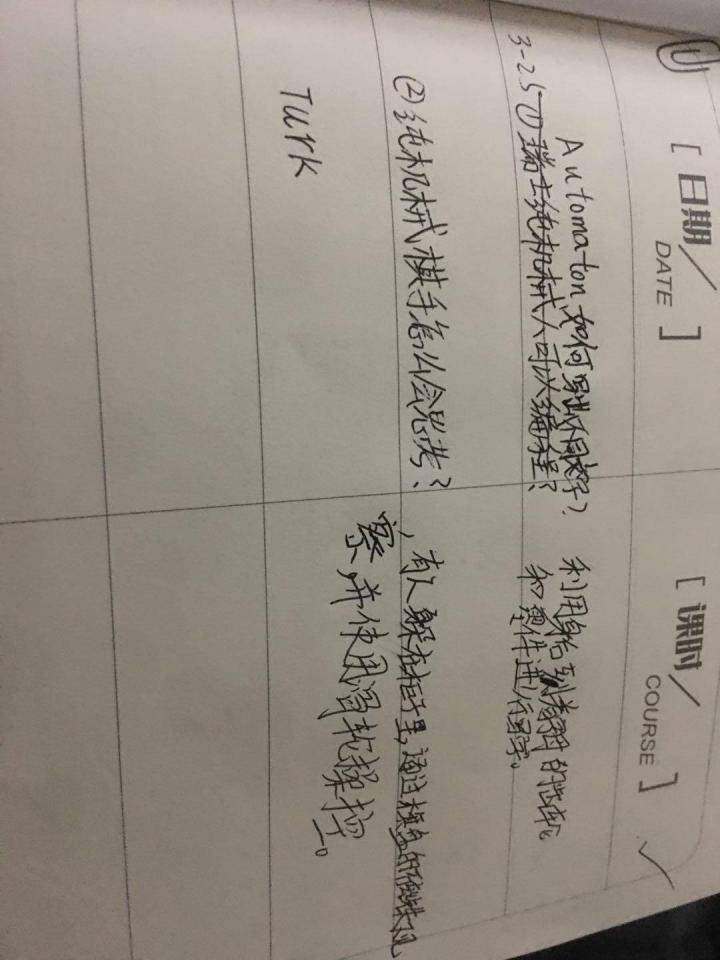 [日期/DATE]
[课时/COURSE]
Automaton 如何写出不同字?
3-25 ①瑞士纯机械人可以编程?
利用身后
和零件进行写字。
②纯机械棋手怎么会思考?
,有人躲在柜子里,通过棋子的磁铁观
察,并使用滑轮操控。
Turk